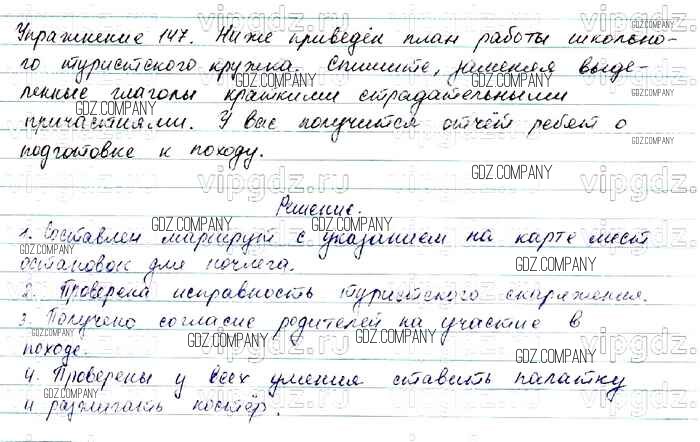 Упражнение 147. Ниже приведён план работы школьно-
го туристского кружка. Спишите, заменяя выде-
ленные глаголы краткими страдательными
причастиями. У вас получится отчёт ребят о
подготовке к походу.
Решение.
1. Составлен маршрут с указанием на карте мест
остановок для ночлега.
2. Проверена исправность туристского снаряжения.
3. Получено согласие родителей на участие в
походе.
4. Проверены у всех умения ставить палатку
и разжигать костёр.